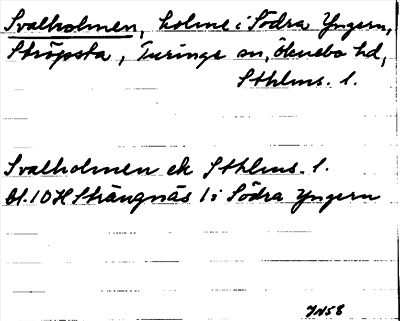 Svalholmen, holme i Södra Yngern,
Ströpsta, Turinge sn, Öknebo hd,
Sthlms. l.
Svalholmen ek Sthlms. l.
bl. 10H Strängnäs 1 i Södra Yngern
JN58